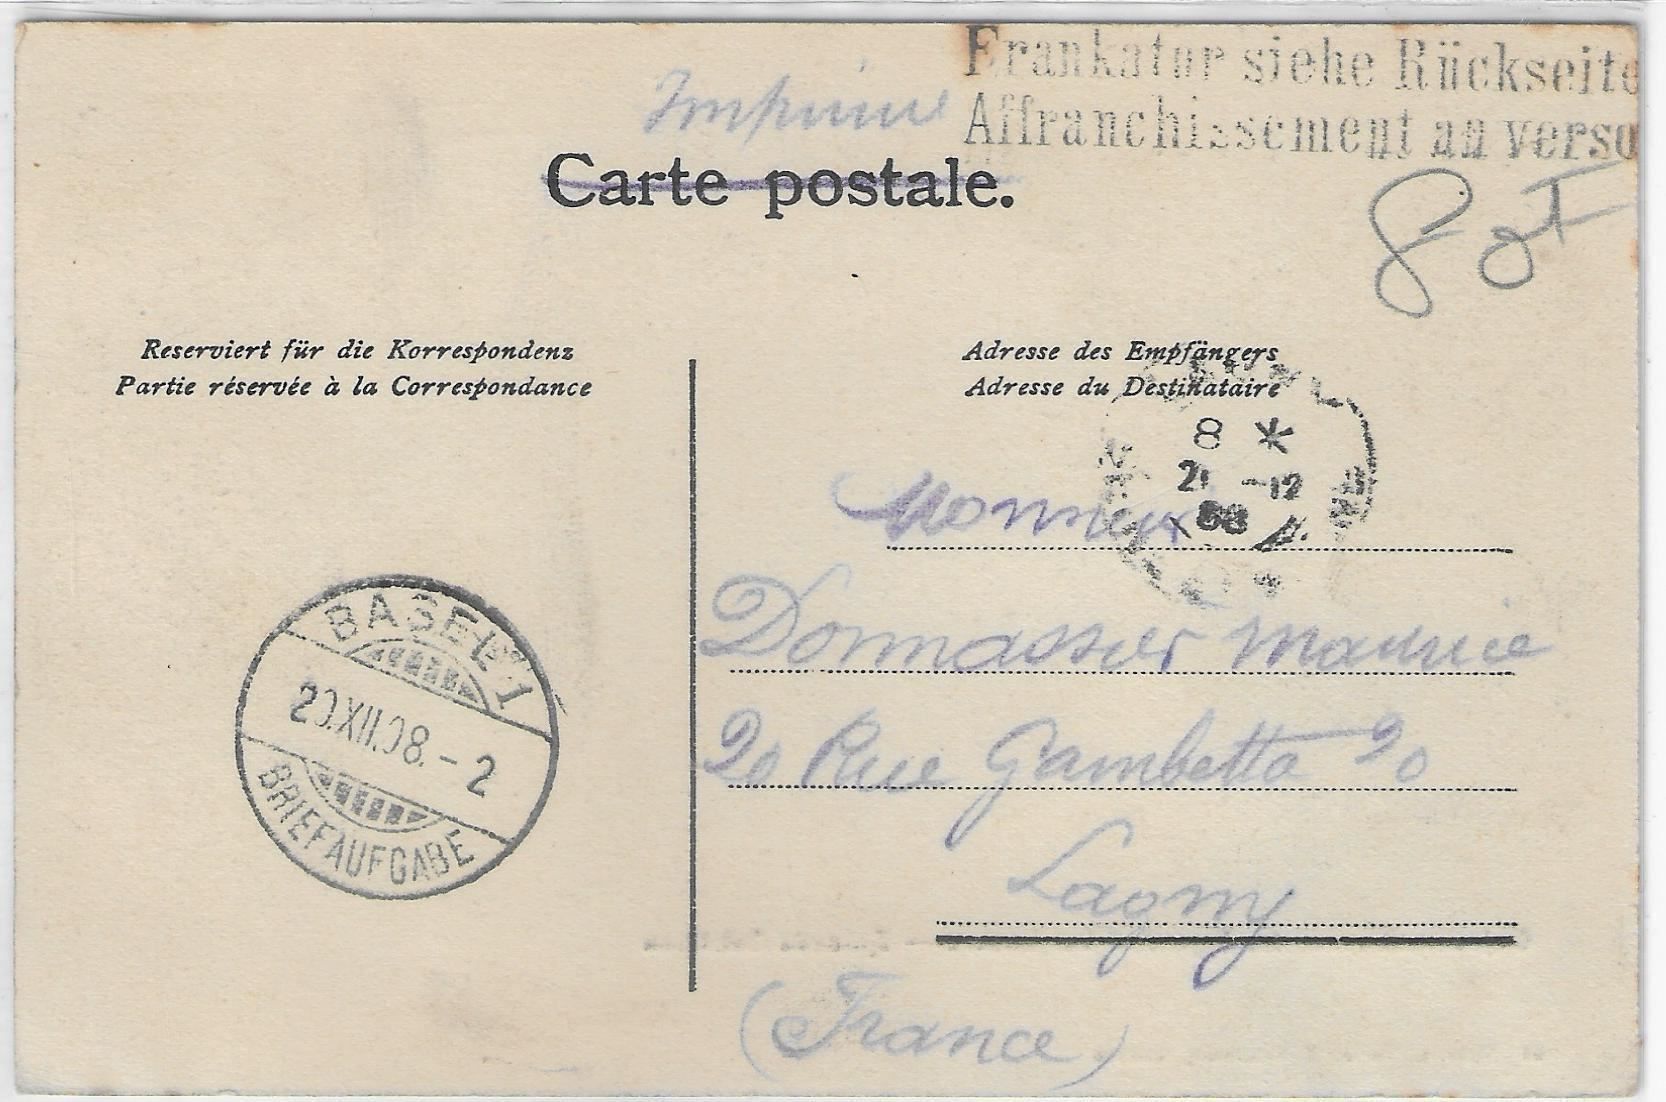 Imprimé
Frankatur siehe Rückseite
Affranchissement au verso
Carte postale.
Reserviert für die Korrespondenz
Partie réservée à la Correspondance
Adresse des Empfängers
Adresse du Destinataire
8 *
21 -12
08
Monsieur
Donnassier Maurice
20 Rue Gambetta 20
Lagny
(France)
BASEL 1
20.XII.08.-2
BRIEFAUFGABE